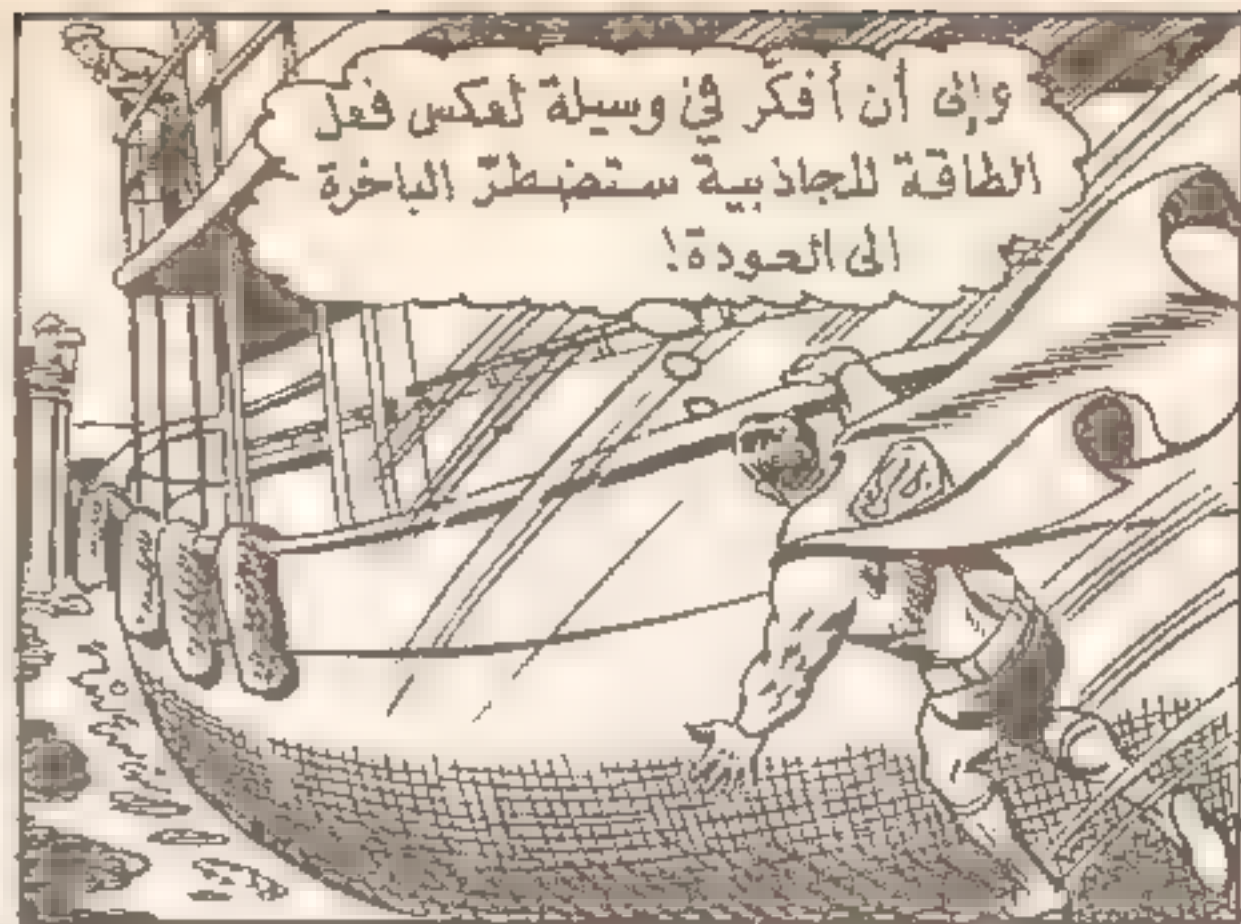 وإلى أن أفكّر في وسيلة لعكس فعل
الطاقة للجاذبية ستضطرّ الباخرة
الى العودة!